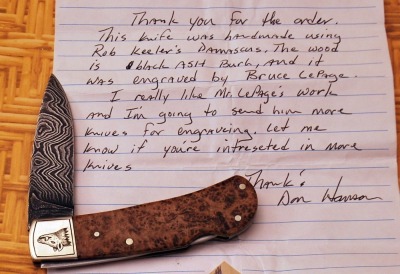 Thank you for the order.
This knife was handmade using
Rob Keeler's Damascus. The wood
is black ASH Burl, and it
was engraved by Bruce LePage.
I really like Mr. LePage's work
and I'm going to send him more
knives for engraveing. Let me
know if you're intreseted in more
knives
Thank's
Don Hanson